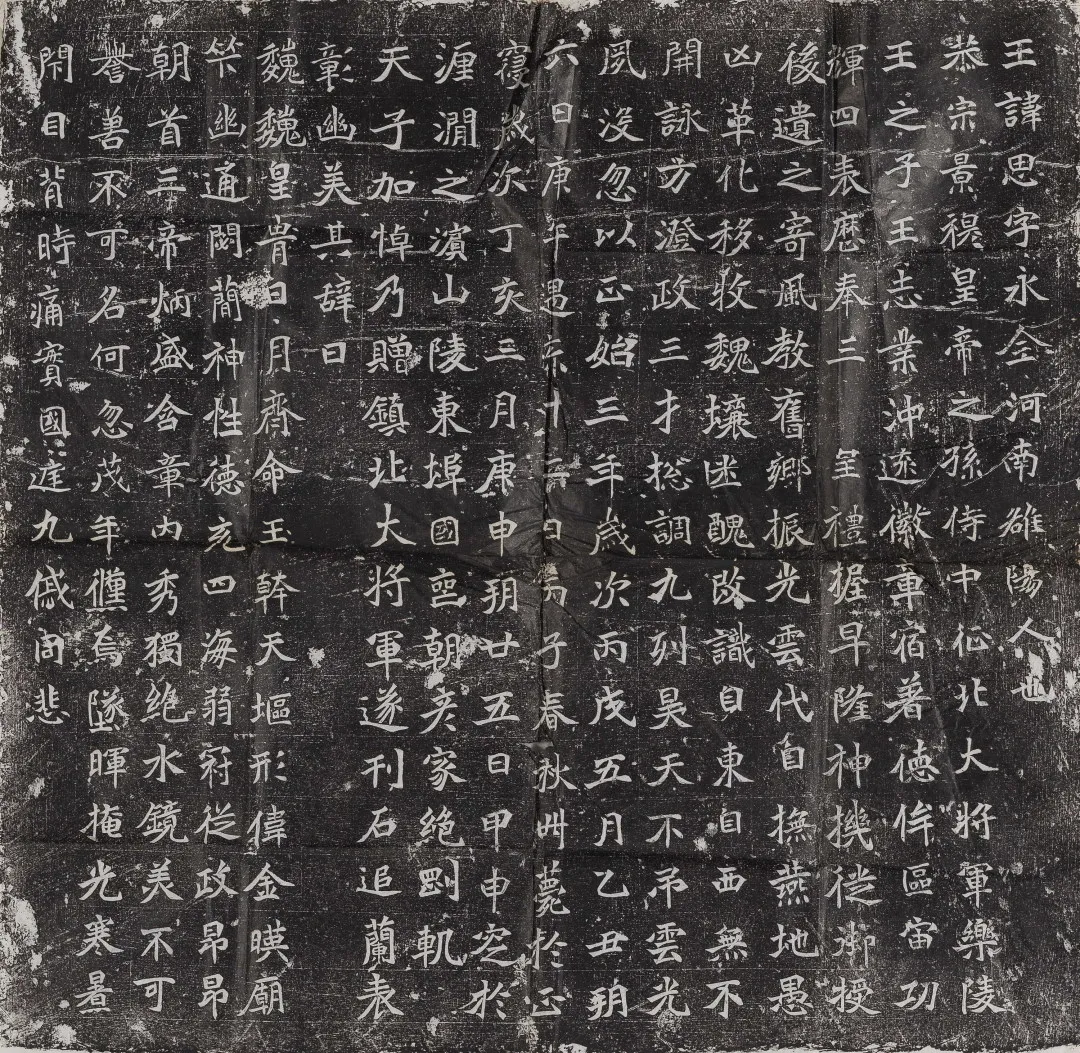 王諱思字永全河南雒陽人也
恭宗景穆皇帝之孫侍中征北大將軍樂陵
王之子王志業沖遠徽章宿著德侔區宙功
輝四表歷奉三呈禮握早隆神機從御授
後遺之寄風教舊鄉振光雲代自撫燕地愚
凶革化移牧魏壤迷醜改識自東自西無不
開詠方澄政三才揔調九列昊天不弔雲光
夙沒忽以正始三年歲次丙戌五月乙丑朔
六日庚午遇患十二日丙子春秋卌薨於正
寢歲次丁亥三月庚申朔廿五日甲申窆於
瀍澗之濱山陵東埠國喪朝彥家絕剛軌
天子加悼乃贈鎮北大將軍遂刊石追蘭表
彰幽美其辞曰
巍巍皇胄日月齊命王幹天塸形偉金暎廟
笇幽通閡蕳神性德充四海弱冠從政昂昂
朝首三帝炳盛含章內秀獨絕水鏡美不可
譽善不可名何忽茂年焉墜暉掩光寒暑
閇目背時痛實國庭九戚同悲